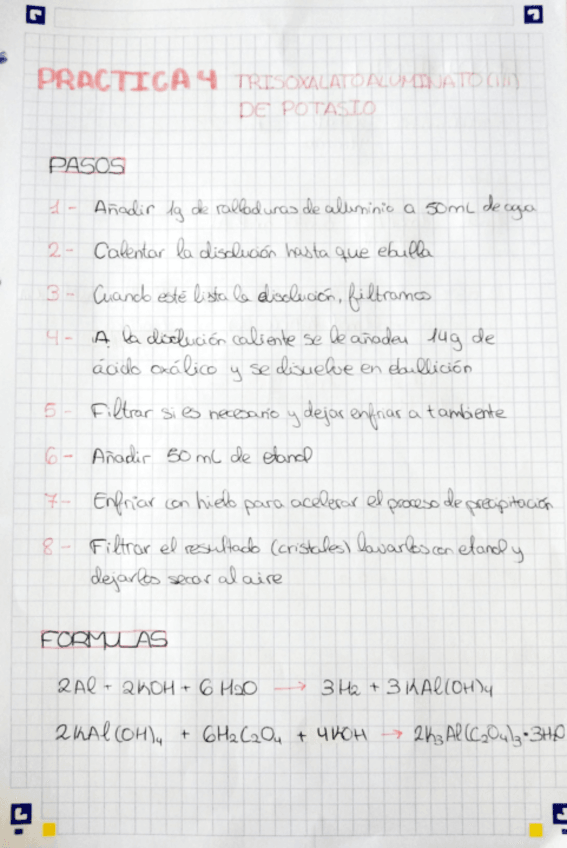 PRACTICA 4 TRISOXALATOALUMINATO (III)
DE POTASIO
PASOS
1- Añadir 1g de ralladuras de aluminio a 50mL de agua
2- Calentar la disolución hasta que ebulla
3- Cuando esté lista la disolución, filtramos
4- A la disolución caliente se le añaden 14g de
ácido oxálico y se disuelve en ebullición
5- Filtrar si es necesario y dejar enfriar a t ambiente
6- Añadir 50 mL de etanol
7- Enfriar con hielo para acelerar el proceso de precipitación
8- Filtrar el resultado (cristales) lavarlos con etanol y
dejarlos secar al aire
FORMULAS
2Al + 2KOH + 6 H2O → 3H2 + 3KAl(OH)4
2KAl(OH)4 + 6H2C2O4 + 4KOH → 2K3Al(C2O4)3·3H2O